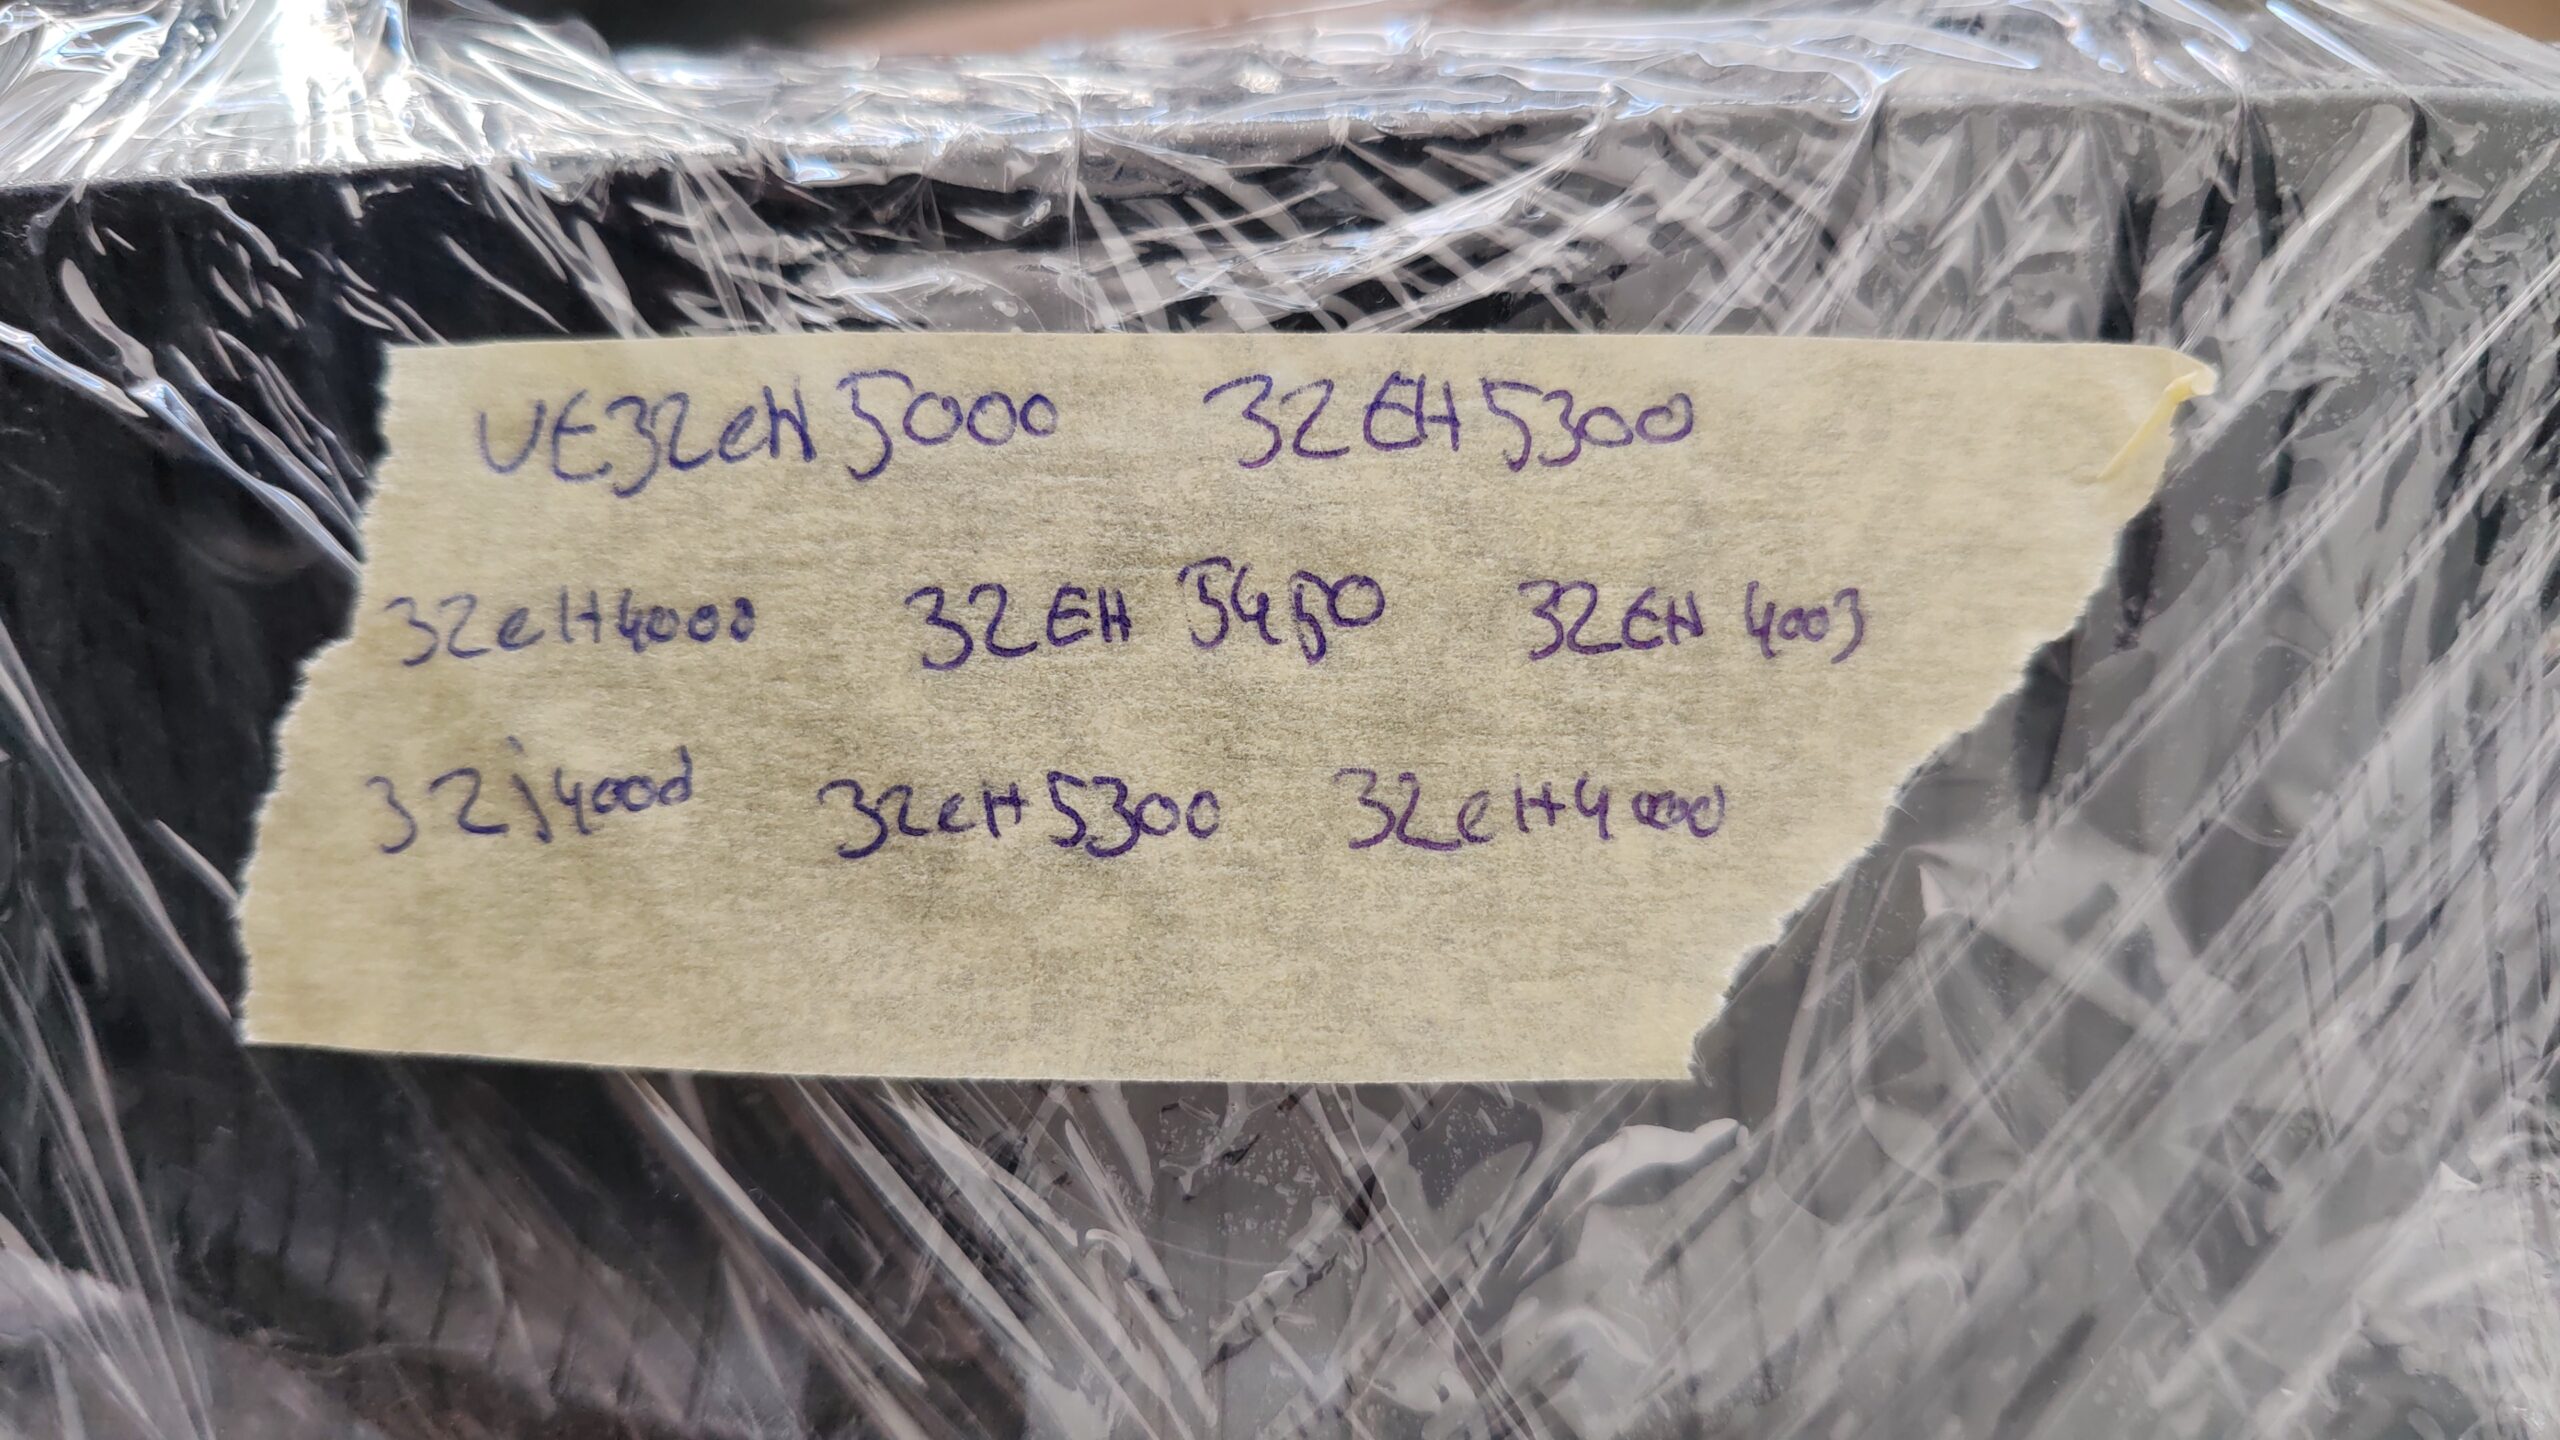 UE32eH5000 32EH5300
32eH4000 32EH 5450 32EH 4003
32j4000 32eH5300 32eH4000